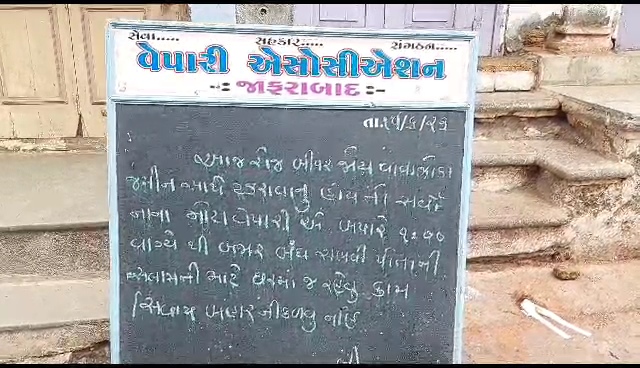 સેવા..... સહકાર..... સંગઠન.....
વેપારી એસોસીએશન
-ઃ જાફરાબાદ ઃ-
તા.૧૫/૬/૨૩
આજ રોજ બીપર જોય વાવાઝોડા
જમીન સાથે ટકરાવાનું હોય તો સર્વો
નાના મોટા વેપારી એ બપોરે ૧૨:૦૦
વાગ્યે થી બજાર બંધ રાખવી પોતાની
સલામતી માટે ઘરમાં જ રહેવુ કામ
સિવાય બહાર નીકળવુ નહિ
લી